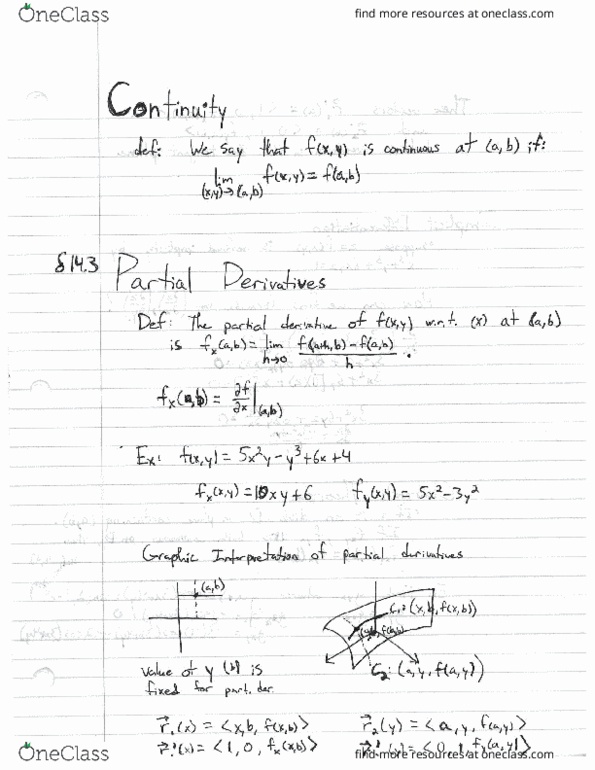 OneClass
find more resources at oneclass.com
Continuity
def: We say that f(x,y) is continuous at (a,b) if:
lim (x,y)→(a,b) f(x,y) = f(a,b)
§14.3 Partial Derivatives
Def: The partial derivative of f(x,y) w.r.t. (x) at (a,b)
is f_x(a,b) = lim h→0 f(a+h,b) - f(a,b) / h .
f_x(a,b) = ∂f/∂x |(a,b)
Ex: f(x,y) = 5x²y - y³ + 6x + 4
f_x(x,y) = 10xy + 6 f_y(x,y) = 5x² - 3y²
Graphic Interpretation of partial derivatives
(a,b)
C₁: (x,b,f(x,b))
C₂: (a,y,f(a,y))
value of y (b) is
fixed for part. der.
r⃗₁(x) = <x,b,f(x,b)> r⃗₂(y) = <a,y,f(a,y)>
r⃗₁'(x) = <1,0,f_x(x,b)> <0,1,f_y(a,y)>
OneClass
find more resources at oneclass.com